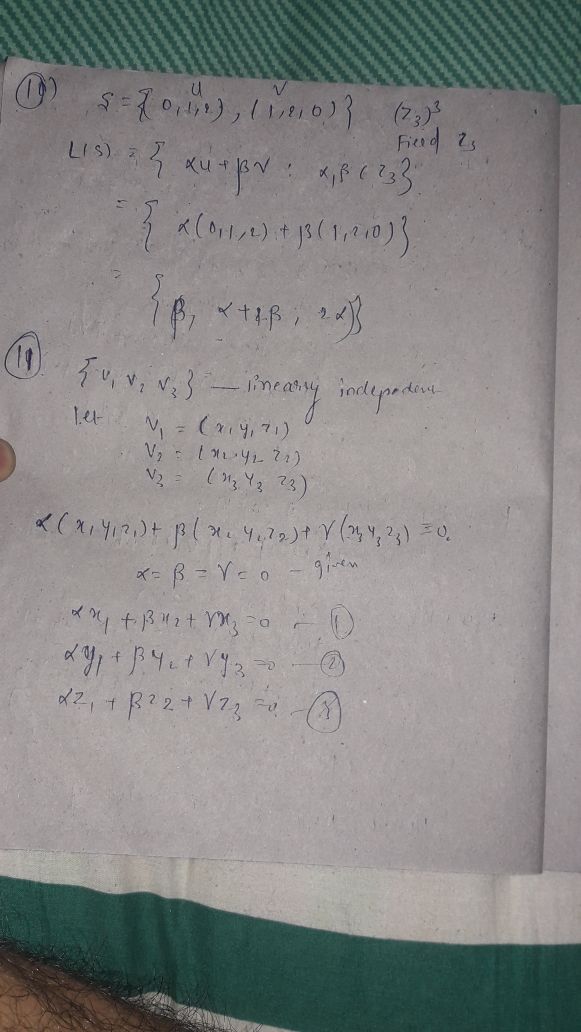 10)
u v
S = { 0,1,2), (1,2,0)} (Z3)^3
Field Z3
L(S) = { αu + βv : α,β ( Z3}
= { α(0,1,2) + β(1,2,0)}
= { β, α+2β, 2α)}
11
{ v1 v2 v3 } — linearly indepedent
let v1 = (x1 y1 z1)
v2 = (x2 y2 z2)
v3 = (x3 y3 z3)
α(x1 y1 z1) + β(x2 y2 z2) + γ(x3 y3 z3) = 0
α = β = γ = 0 – given
αx1 + βx2 + γx3 = 0 — 1
αy1 + βy2 + γy3 = 0 — 2
αz1 + βz2 + γz3 = 0 — 3